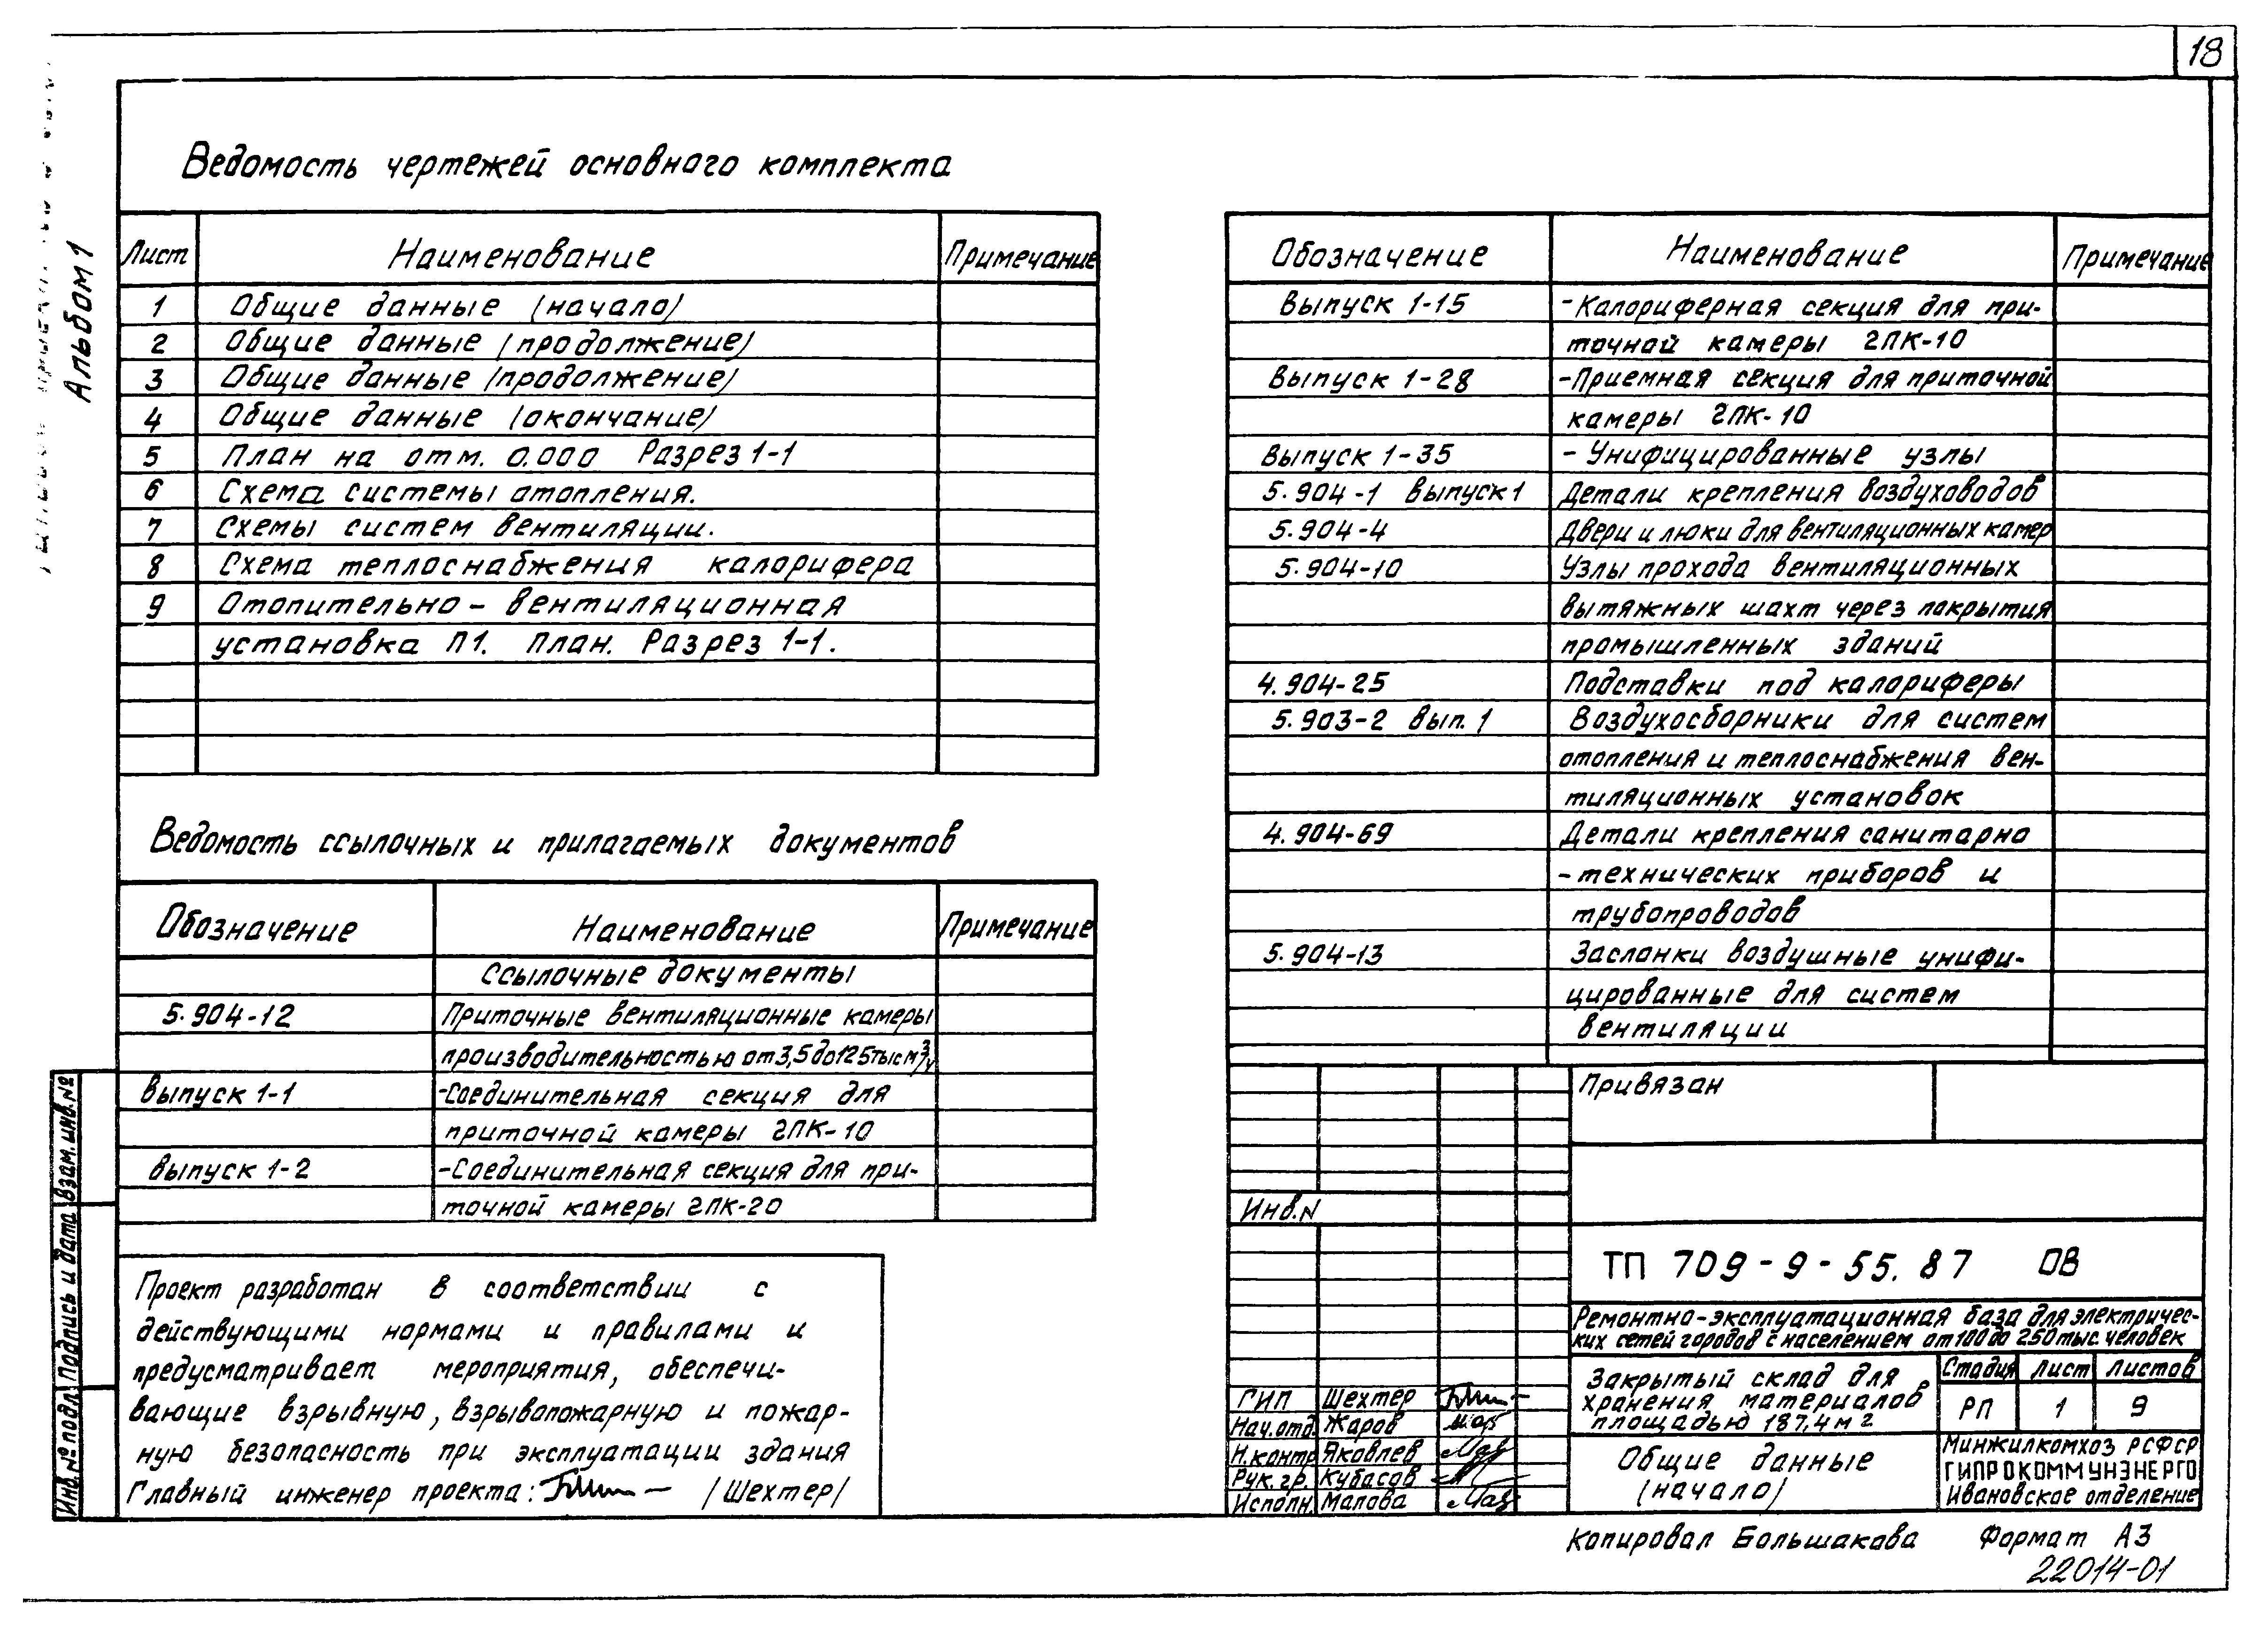 18
Альбом 1
Ведомость чертежей основного комплекта
Лист Наименование Примечание
1 Общие данные (начало)
2 Общие данные (продолжение)
3 Общие данные (продолжение)
4 Общие данные (окончание)
5 План на отм. 0.000 Разрез 1-1
6 Схема системы отопления.
7 Схемы систем вентиляции.
8 Схема теплоснабжения калорифера
9 Отопительно- вентиляционная
установка П1. План. Разрез 1-1.
Ведомость ссылочных и прилагаемых документов
Обозначение Наименование Примечание
Ссылочные документы
5.904-12 Приточные вентиляционные камеры
производительностью от 3,5 до 125 тыс м³/ч
Выпуск 1-1 -Соединительная секция для
приточной камеры 2ПК-10
Выпуск 1-2 -Соединительная секция для при-
точной камеры 2ПК-20
Проект разработан в соответствии с
действующими нормами и правилами и
предусматривает мероприятия, обеспечи-
вающие взрывную, взрывопожарную и пожар-
ную безопасность при эксплуатации здания
Главный инженер проекта: /Шехтер/
Взам. инв. №
Подпись и дата
Инв. № подл.
Обозначение Наименование Примечание
Выпуск 1-15 -Калориферная секция для при-
точной камеры 2ПК-10
Выпуск 1-28 -Приемная секция для приточной
камеры 2ПК-10
Выпуск 1-35 - Унифицированные узлы
5.904-1 Выпуск 1 Детали крепления воздуховодов
5.904-4 Двери и люки для вентиляционных камер
5.904-10 Узлы прохода вентиляционных
вытяжных шахт через покрытия
промышленных зданий
4.904-25 Подставки под калориферы
5.903-2 вып. 1 Воздухосборники для систем
отопления и теплоснабжения вен-
тиляционных установок
4.904-69 Детали крепления санитарно
-технических приборов и
трубопроводов
5.904-13 Заслонки воздушные унифи-
цированные для систем
вентиляции
Привязан
Инв. N
ТП 709-9-55.87 ОВ
Ремонтно-эксплуатационная база для электричес-
ких сетей городов с населением от 100 до 250 тыс. человек
Закрытый склад для
хранения материалов
площадью 187,4 м2
Стадия Лист Листов
РП 1 9
ГИП Шехтер
Нач.отд. Жаров
Н.контр Яковлев
Рук. гр. Кубасов
Исполн. Малова
Общие данные
(начало)
Минжилкомхоз РСФСР
ГИПРОКОММУНЭНЕРГО
Ивановское отделение
Копировал Большакова Формат А3
22014-01